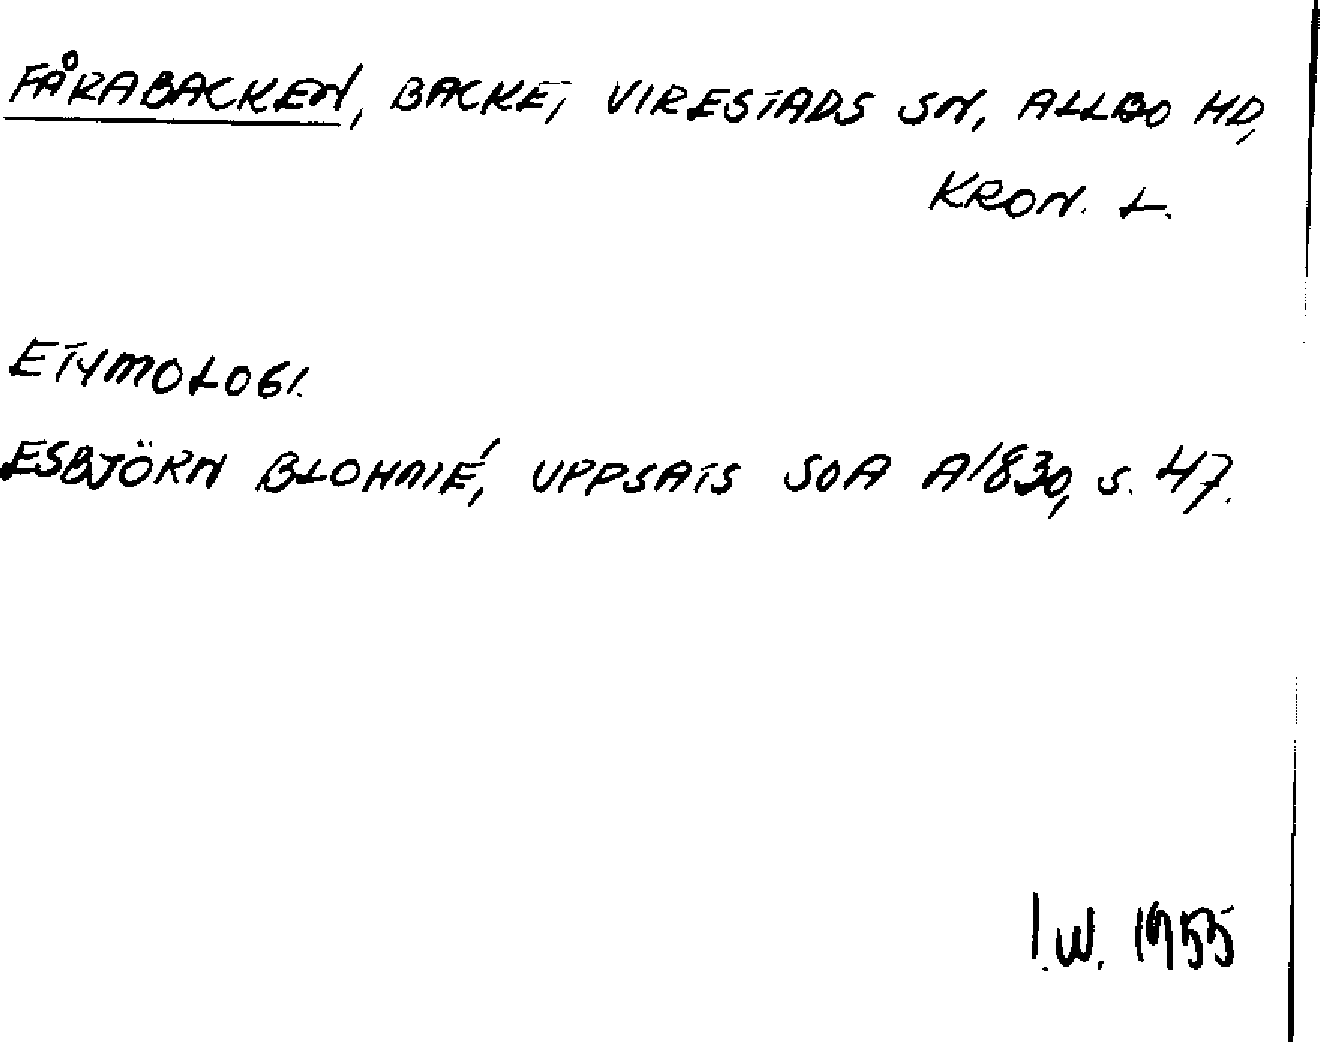 FÅRABACKEN, BACKE, VIRESTADS SN, ALLBO HD,
KRON. L.
ETYMOLOGI.
ESBJÖRN BLOHMÉ, UPPSATS SOA A1830, S. 47.
I.W. 1955